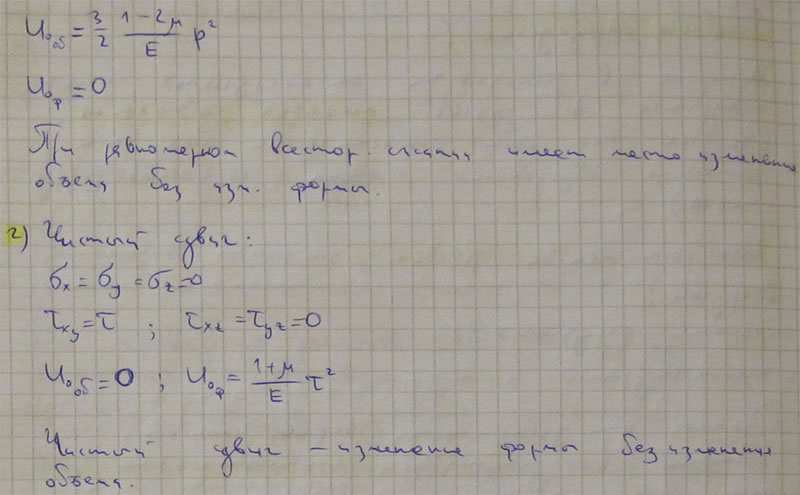 U₀об = 3/2 (1-2μ)/E p²
U₀ф = 0
При равномерном всестор. сжатии имеет место изменение
объема без изм. формы.
2) Чистый сдвиг:
σx = σy = σz = 0
τxy = τ ; τxz = τyz = 0
U₀об = 0 ; U₀ф = (1+μ)/E τ²
Чистый сдвиг – изменение формы без изменения
объема.